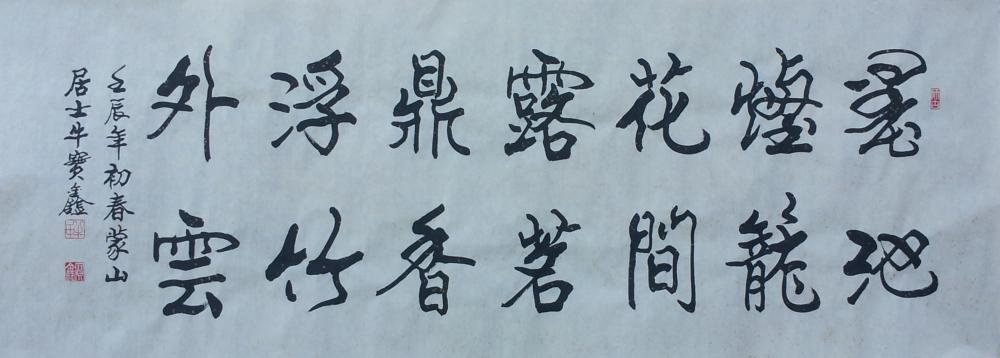 墨池
煙籠
花間
露茗
鼎香
浮竹
外雲
壬辰年初春蒙山
居士牛寶鑫